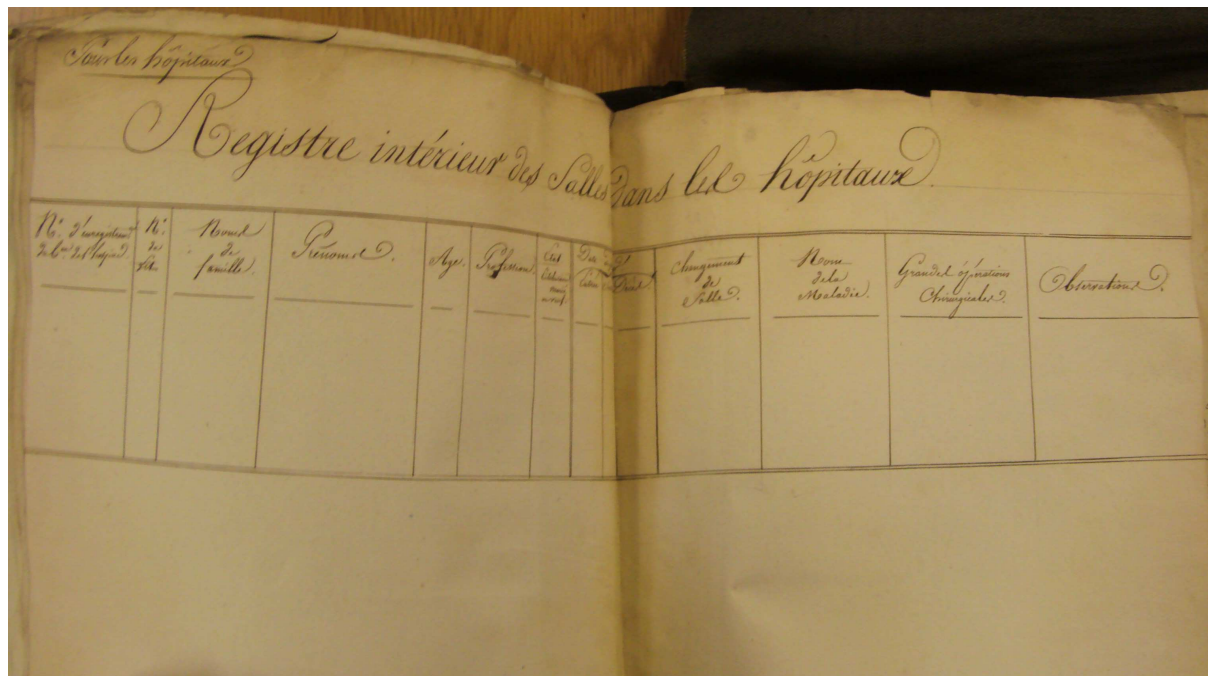 Pour les hôpitaux
Registre intérieur des Salles dans les hôpitaux.
N.º d'enregistremt
de l'hospice.
N.º
de
Lits
Noms
de
famille.
Prénoms.
Age.
Profession
Etat
Célibataire
marié
ou veuf.
Changement
de
Salle.
Nom
de la
Maladie.
Grandes opérations
Chirurgicales.
Observations.